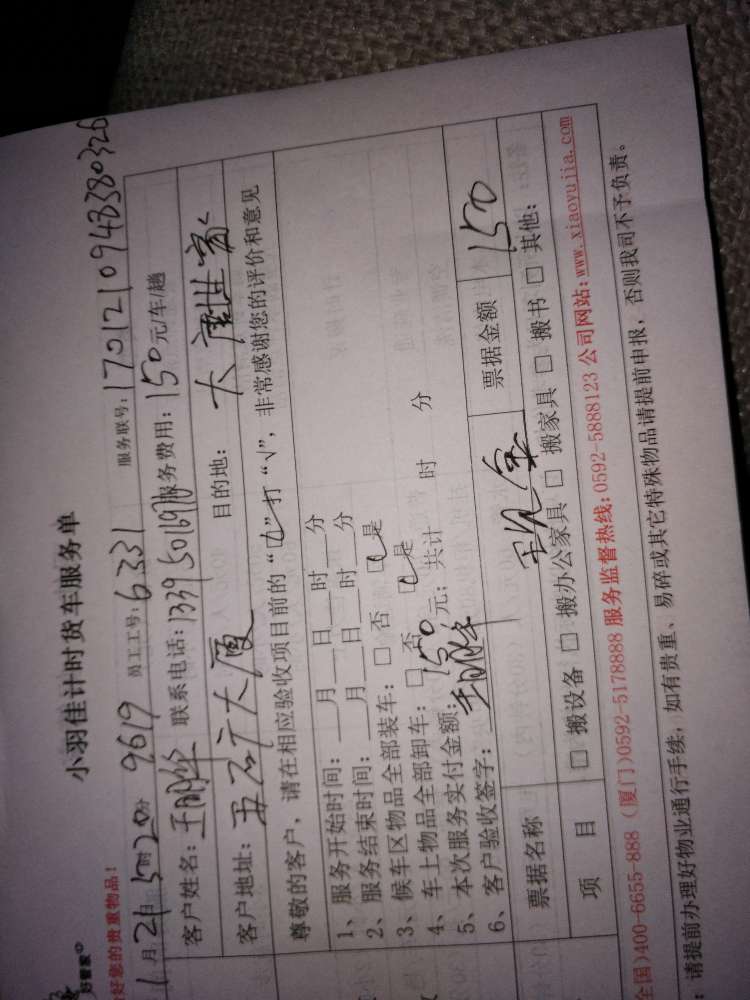 好管家
小羽佳计时货车服务单
好您的贵重物品！
1月21日5时20分 9619 员工工号：6331 服务联号：1701210948380326
客户姓名：王丽华 联系电话：13395016 服务费用：150元/车/趟
客户地址：五矿大厦 目的地：大唐世家
尊敬的客户，请在相应验收项目前的“☑”打“√”，非常感谢您的评价和意见
1、服务开始时间：___月___日___时___分
2、服务结束时间：___月___日___时___分
3、候车区物品全部装车：□ 否 ☑是
4、车上物品全部卸车：□ 否 ☑是
5、本次服务实付金额：150元；共计 时 分
6、客户验收签字：王丽华
票据名称 现金 票据金额 150
项 目 □ 搬设备 □ 搬办公家具 □ 搬家具 □ 搬书 □ 其他：
全国)400-6655-888 (厦门)0592-5178888 服务监督热线：0592-5888123 公司网站：www.xiaoyujia.com
：请提前办理好物业通行手续，如有贵重、易碎或其它特殊物品请提前申报，否则我司不予负责。